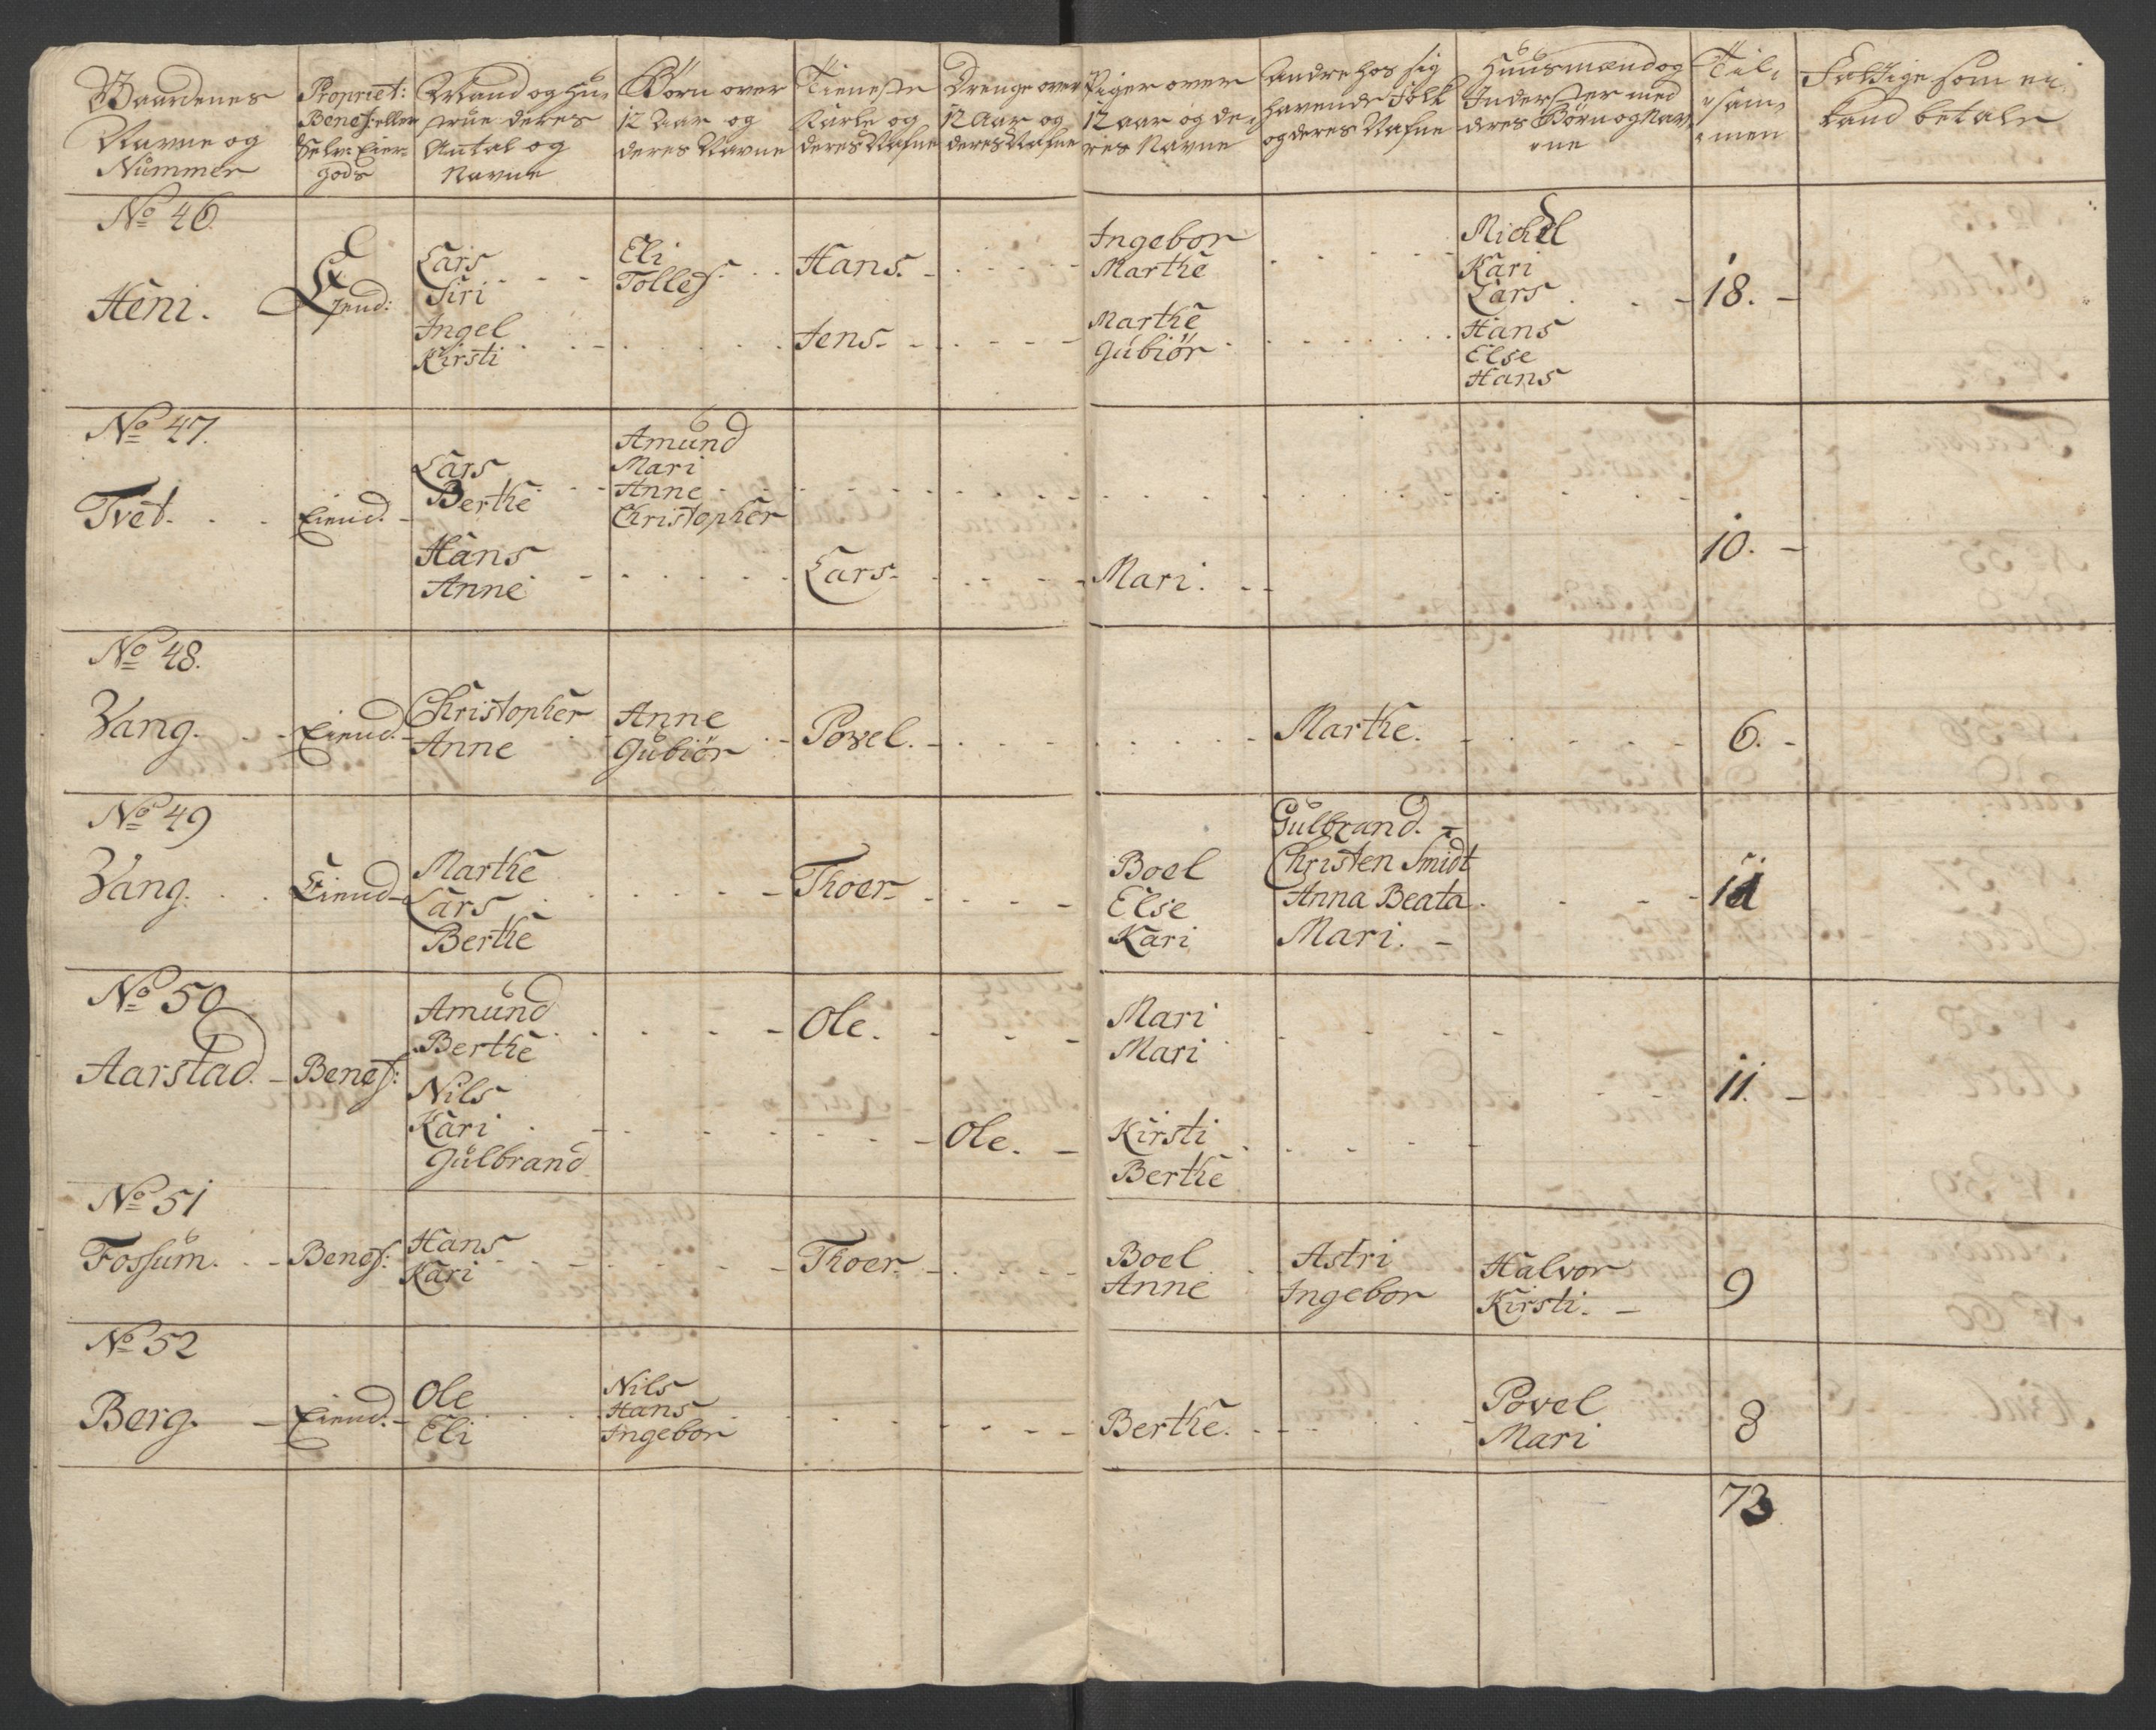 Gaardenes Navne og Nummer
Propriet: Benef: eller Selv-Eier-gods
Mand og Hustrue deres Antal og Navne
Börn over 12 Aar og deres Navne
Tieneste Karle og deres Nafne
Drenge over 12 Aar og deres Nafne
Piger over 12 aar og deres Navne
Andre hos sig havende Folk og deres Nafne
Huusmænd og Inderster med deres Börn og Navne
Tilsammen
Fattige som ei kand betale
No 46.
Heni.
Ejend:
Lars
Siri
Eli
Tollef
Hans.
Ingebor
Marthe
Michel
Kari
Lars
Hans
Else
Hans
18.
Ingel
Kirsti
Jens
Marthe
Gubiör
No 47.
Tvet.
Eiend.
Lars
Berthe
Amund
Mari
Anne
Christopher
Hans
Anne
Lars
Mari.
10.
No 48.
Vang.
Eiend.
Christopher
Anne
Anne
Gubiör
Povel.
Marthe.
6.
No 49
Vang.
Eiend
Marthe
Lars
Berthe
Thoer
Boel
Else
Kari
Gulbrand.
Christen Smidt
Anna Beata
Mari.
11
No 50
Aarstad.
Benef:
Amund
Berthe
Ole.
Mari
Mari
Nils
Kari
Gulbrand
Ole.
Kirsti
Berthe
11.
No 51
Fossum.
Benef:
Hans
Kari
Thoer
Boel
Anne
Astri
Ingebor
Halvor
Kirsti.
9
No 52
Berg.
Eiend.
Ole
Eli
Nils
Hans
Ingebor
Berthe.
Povel
Mari
8
73